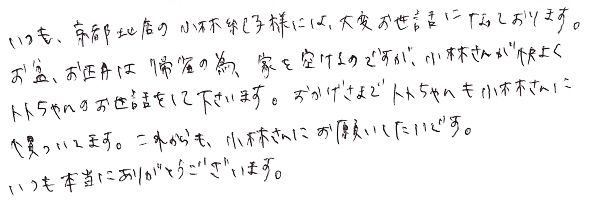 いつも、京都地店の小林紀子様には、大変お世話になっております。
お盆、お正月は帰省の為、家を空けるのですが、小林さんが快よく
トトちゃんのお世話をして下さいます。おかげさまでトトちゃんも小林さんに
慣っいてます。これからも、小林さんにお願いしたいです。
いつも本当にありがとうございます。